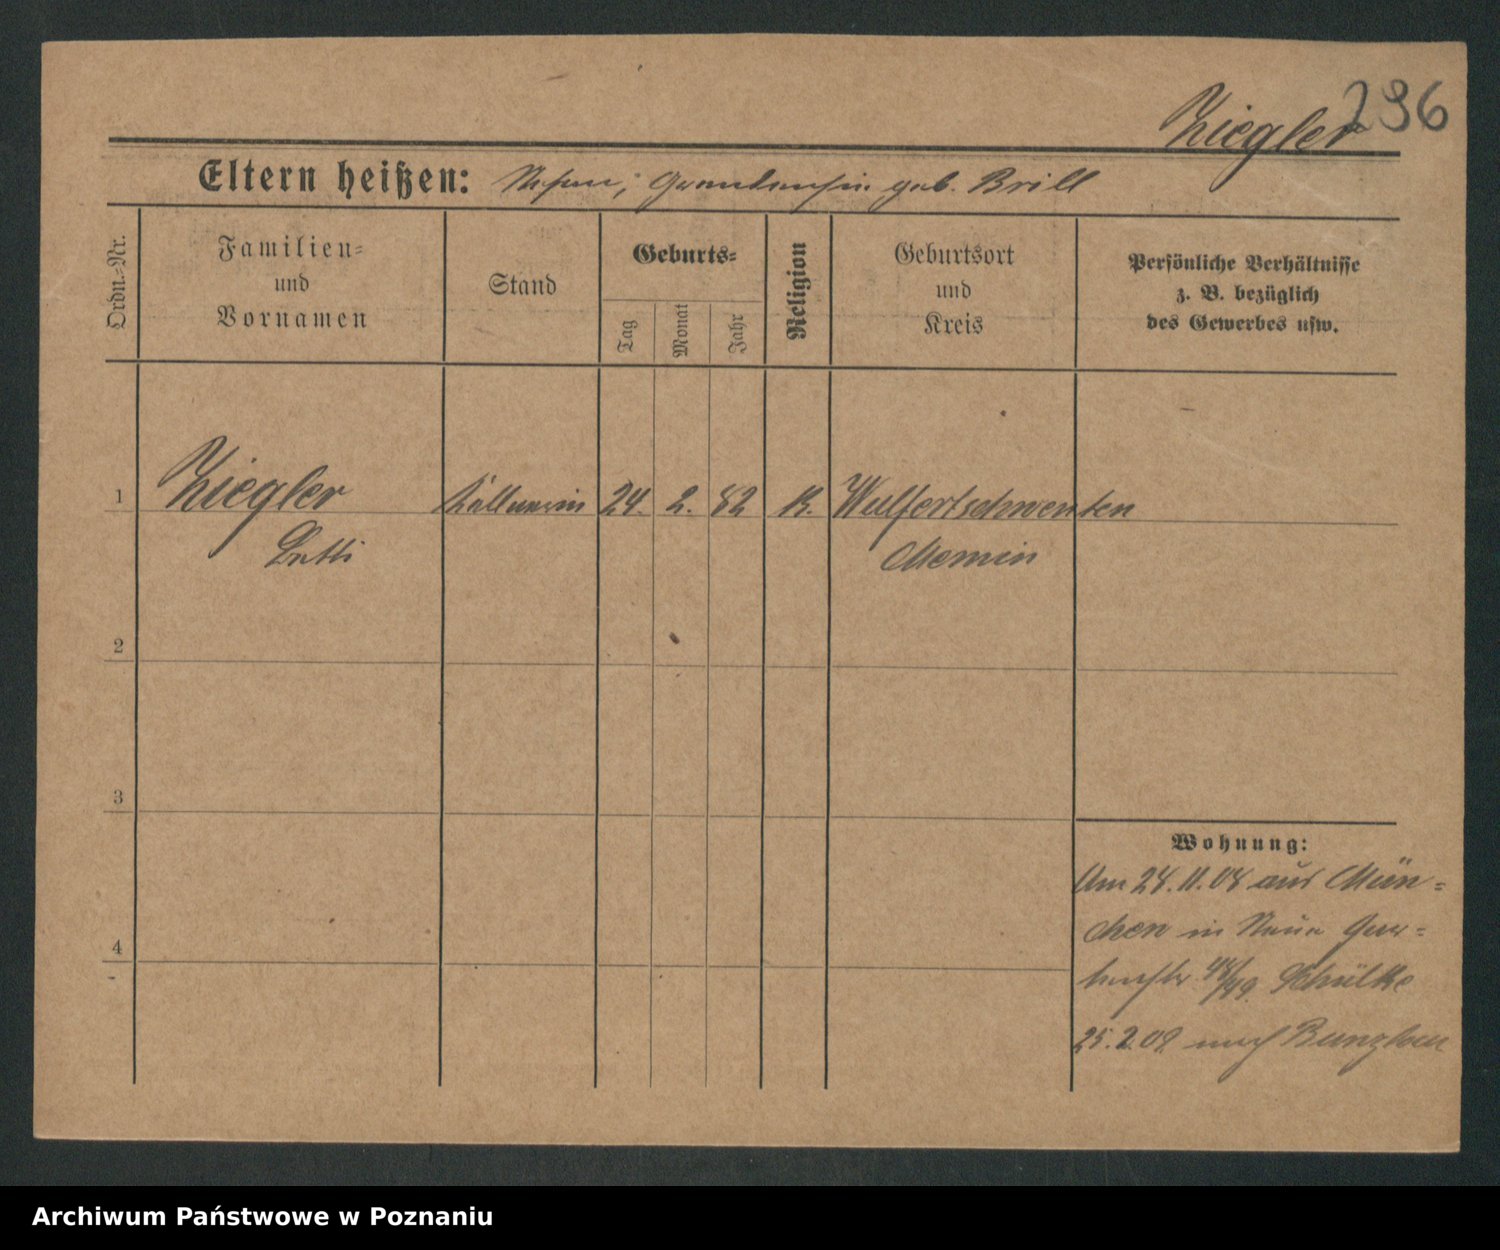 296
Ziegler
Eltern heißen: geb. Brill
Ordn.=Nr.
Familien=
und
Vornamen
Stand
Geburts=
Tag
Monat
Jahr
Religion
Geburtsort
und
Kreis
Persönliche Verhältnisse
z. B. bezüglich
des Gewerbes usw.
1 Ziegler Kellnerin 24. 2. 82 K. Wulfertschwenten
Memmin
2
3
4
Wohnung:
Am 24.11.08 aus Mün=
chen in Neue Gar=
tenstr 48/49. Schülke
25.2.09 nach Bunzlau
Archiwum Państwowe w Poznaniu